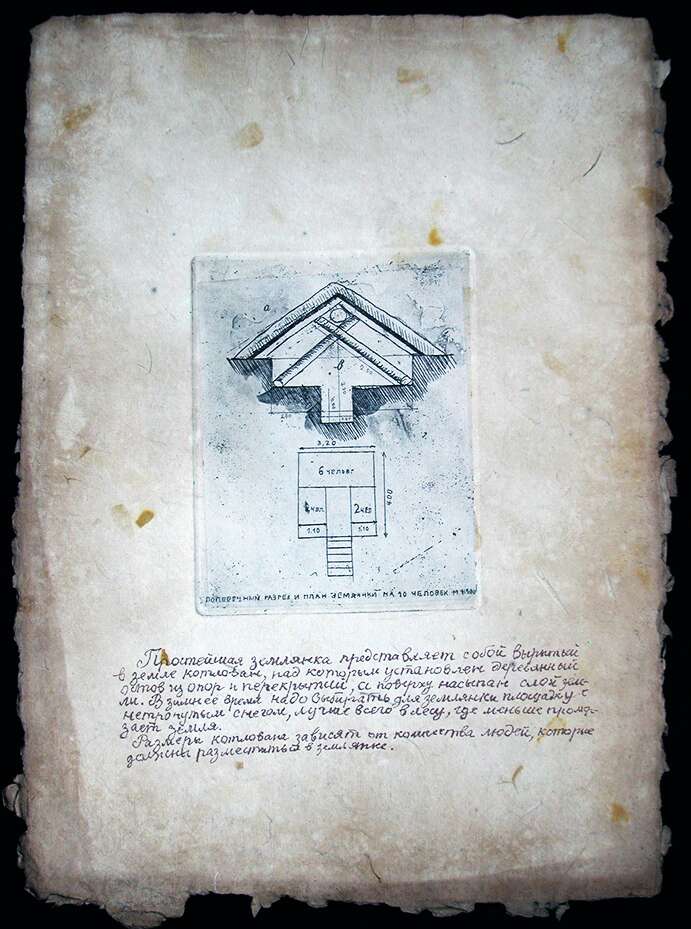 а
в
3,20
6 челов.
4,00
2 чел
1.10
1.10
ПОПЕРЕЧНЫЙ РАЗРЕЗ И ПЛАН ЗЕМЛЯНКИ НА 10 ЧЕЛОВЕК
Простейшая землянка представляет собой вырытый
в земле котлован, над которым установлен деревянный
остов из опор и перекрытий, а поверху насыпан слой зем-
ли. В зимнее время надо выбирать для землянки площадку с
нетронутым снегом, лучше всего в лесу, где меньше промер-
зает земля.
Размеры котлована зависят от количества людей, которые
должны разместиться в землянке.